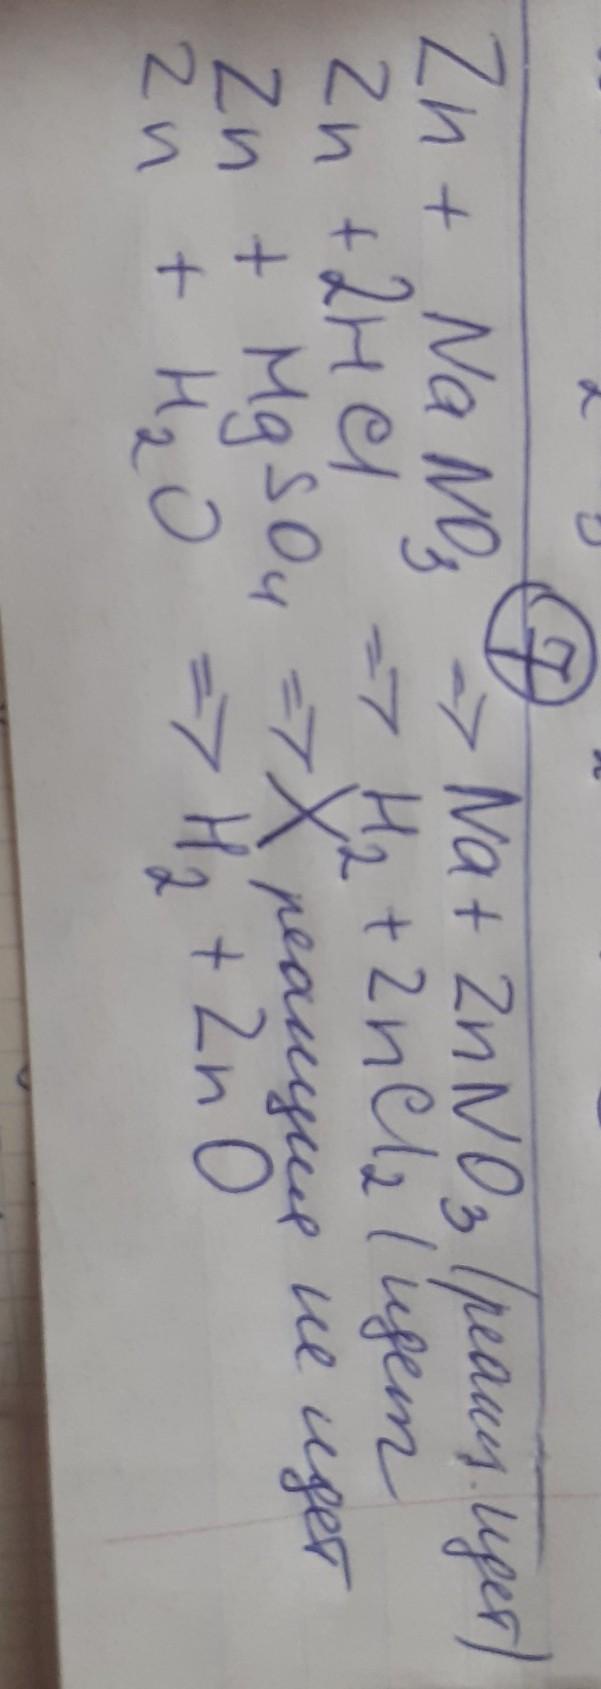 7
Zn + NaNO3 => Na + ZnNO3 (реакц. идет)
Zn + 2HCl => H2 + ZnCl2 (идет
Zn + MgSO4 => X реакция не идет
Zn + H2O => H2 + ZnO